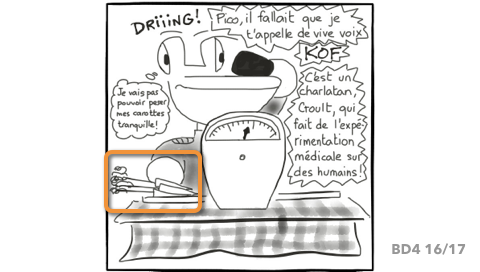 DRïïING!
Pico, il fallait que je
t'appelle de vive voix
KOF
C'est un
charlatan,
Croult, qui
fait de l'expé-
rimentation
médicale sur
des humains!
Je vais pas
pouvoir peser
mes carottes
tranquille!
BD4 16/17